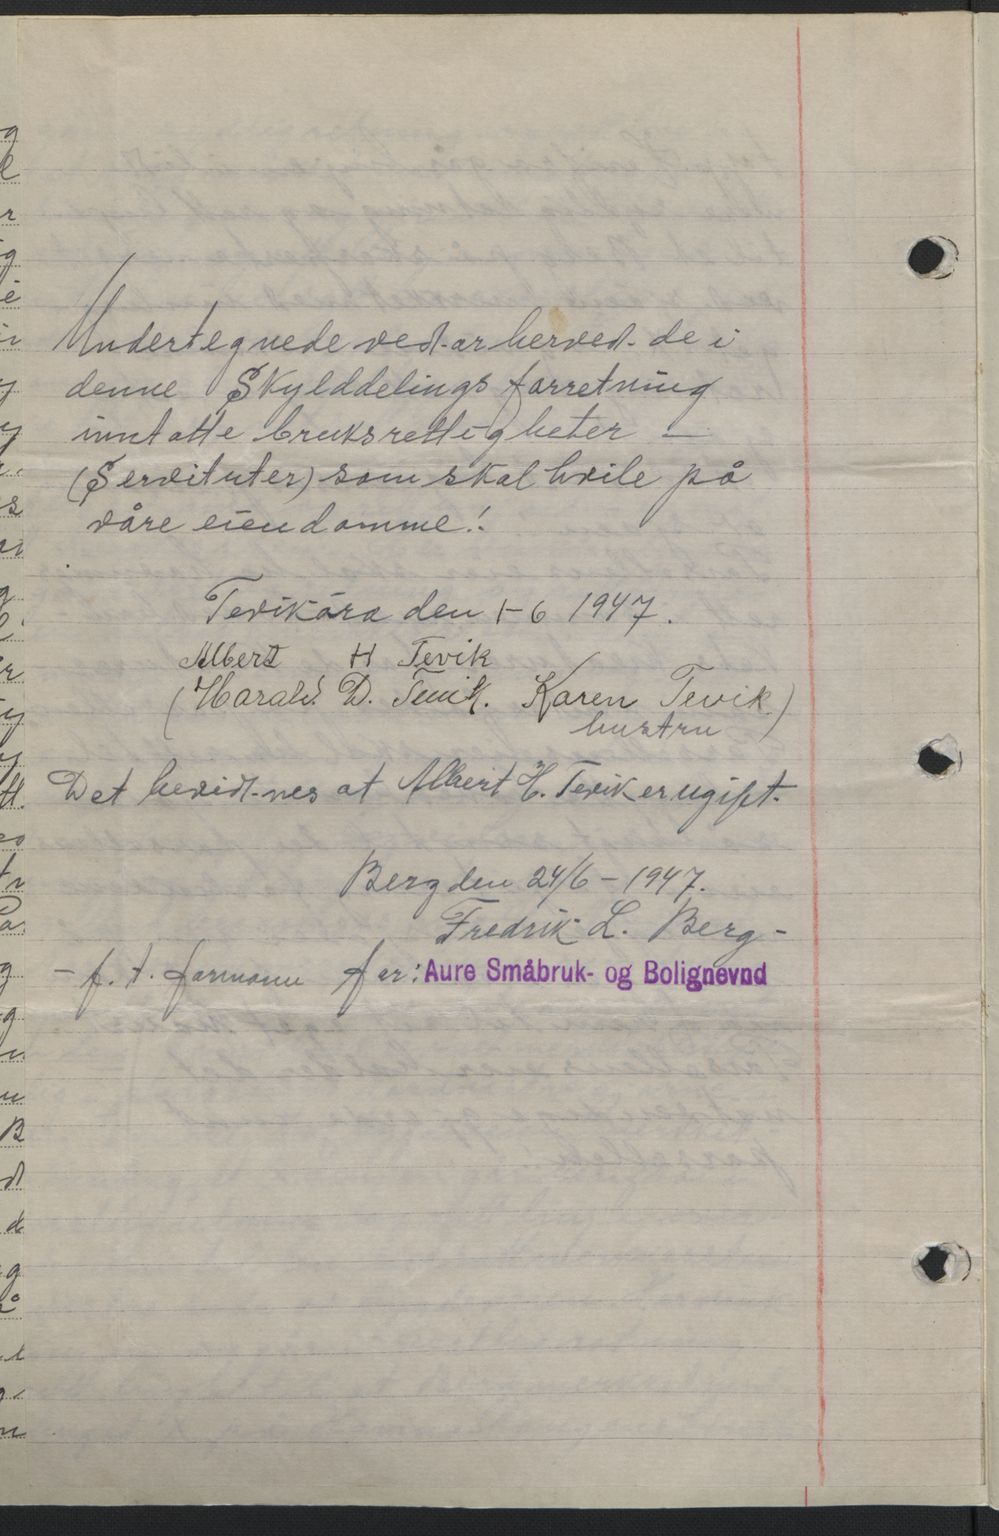 Undertegnede vedtar herved de i
denne Skylddelings forretning
inntatte bruksrettigheter –
(Servituter) som skal hvile på
våre eiendomme!
Tevikåra den 1-6 1947.
Albert H Tevik
(Harald D. Tevik. Karen Tevik)
hustru
Det bevidtnes at Albert H. Tevik er ugift.
Berg den 24/6 – 1947.
Fredrik L. Berg –
– f. t. formann for: Aure Småbruk- og Bolignevnd